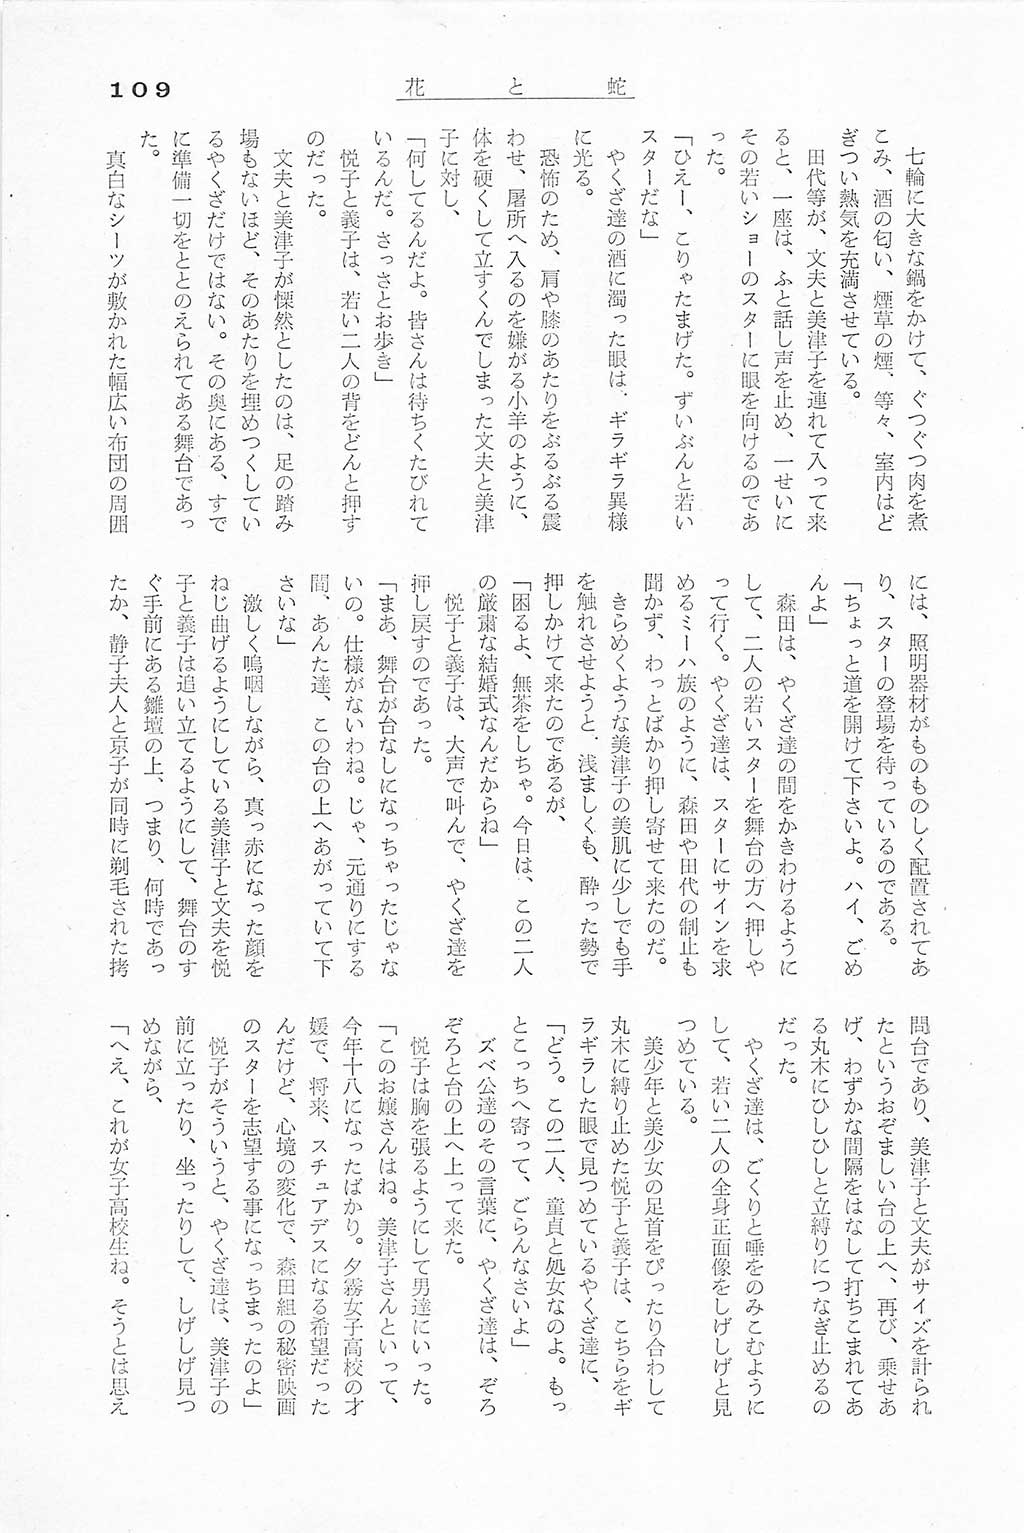 109
花と蛇
七輪に大きな鍋をかけて、ぐつぐつ肉を煮
こみ、酒の匂い、煙草の煙、等々、室内はど
ぎつい熱気を充満させている。
田代等が、文夫と美津子を連れて入って来
ると、一座は、ふと話し声を止め、一せいに
その若いショーのスターに眼を向けるのであ
った。
「ひえー、こりゃたまげた。ずいぶんと若い
スターだな」
やくざ達の酒に濁った眼は、ギラギラ異様
に光る。
恐怖のため、肩や膝のあたりをぶるぶる震
わせ、屠所へ入るのを嫌がる小羊のように、
体を硬くして立すくんでしまった文夫と美津
子に対し、
「何してるんだよ。皆さんは待ちくたびれて
いるんだ。さっさとお歩き」
悦子と義子は、若い二人の背をどんと押す
のだった。
文夫と美津子が慄然としたのは、足の踏み
場もないほど、そのあたりを埋めつくしてい
るやくざだけではない。その奥にある、すで
に準備一切をととのえられてある舞台であっ
た。
真白なシーツが敷かれた幅広い布団の周囲
には、照明器材がものものしく配置されてあ
り、スターの登場を待っているのである。
「ちょっと道を開けて下さいよ。ハイ、ごめ
んよ」
森田は、やくざ達の間をかきわけるように
して、二人の若いスターを舞台の方へ押しや
って行く。やくざ達は、スターにサインを求
めるミーハ族のように、森田や田代の制止も
聞かず、わっとばかり押し寄せて来たのだ。
きらめくような美津子の美肌に少しでも手
を触れさせようと、浅ましくも、酔った勢で
押しかけて来たのであるが、
「困るよ、無茶をしちゃ。今日は、この二人
の厳粛な結婚式なんだからね」
悦子と義子は、大声で叫んで、やくざ達を
押し戻すのであった。
「まあ、舞台が台なしになっちゃったじゃな
いの。仕様がないわね。じゃ、元通りにする
間、あんた達、この台の上へあがっていて下
さいな」
激しく嗚咽しながら、真っ赤になった顔を
ねじ曲げるようにしている美津子と文夫を悦
子と義子は追い立てるようにして、舞台のす
ぐ手前にある雛壇の上、つまり、何時であっ
たか、静子夫人と京子が同時に剃毛された拷
問台であり、美津子と文夫がサイズを計られ
たというおぞましい台の上へ、再び、乗せあ
げ、わずかな間隔をはなして打ちこまれてあ
る丸木にひしひしと立縛りにつなぎ止めるの
だった。
やくざ達は、ごくりと唾をのみこむように
して、若い二人の全身正面像をしげしげと見
つめている。
美少年と美少女の足首をぴったり合わして
丸木に縛り止めた悦子と義子は、こちらをギ
ラギラした眼で見つめているやくざ達に、
「どう。この二人、童貞と処女なのよ。もっ
とこっちへ寄って、ごらんなさいよ」
ズベ公達のその言葉に、やくざ達は、ぞろ
ぞろと台の上へ上って来た。
悦子は胸を張るようにして男達にいった。
「このお嬢さんはね。美津子さんといって、
今年十八になったばかり。夕霧女子高校の才
媛で、将来、スチュアデスになる希望だった
んだけど、心境の変化で、森田組の秘密映画
のスターを志望する事になっちまったのよ」
悦子がそういうと、やくざ達は、美津子の
前に立ったり、坐ったりして、しげしげ見つ
めながら、
「へえ、これが女子高校生ね。そうとは思え